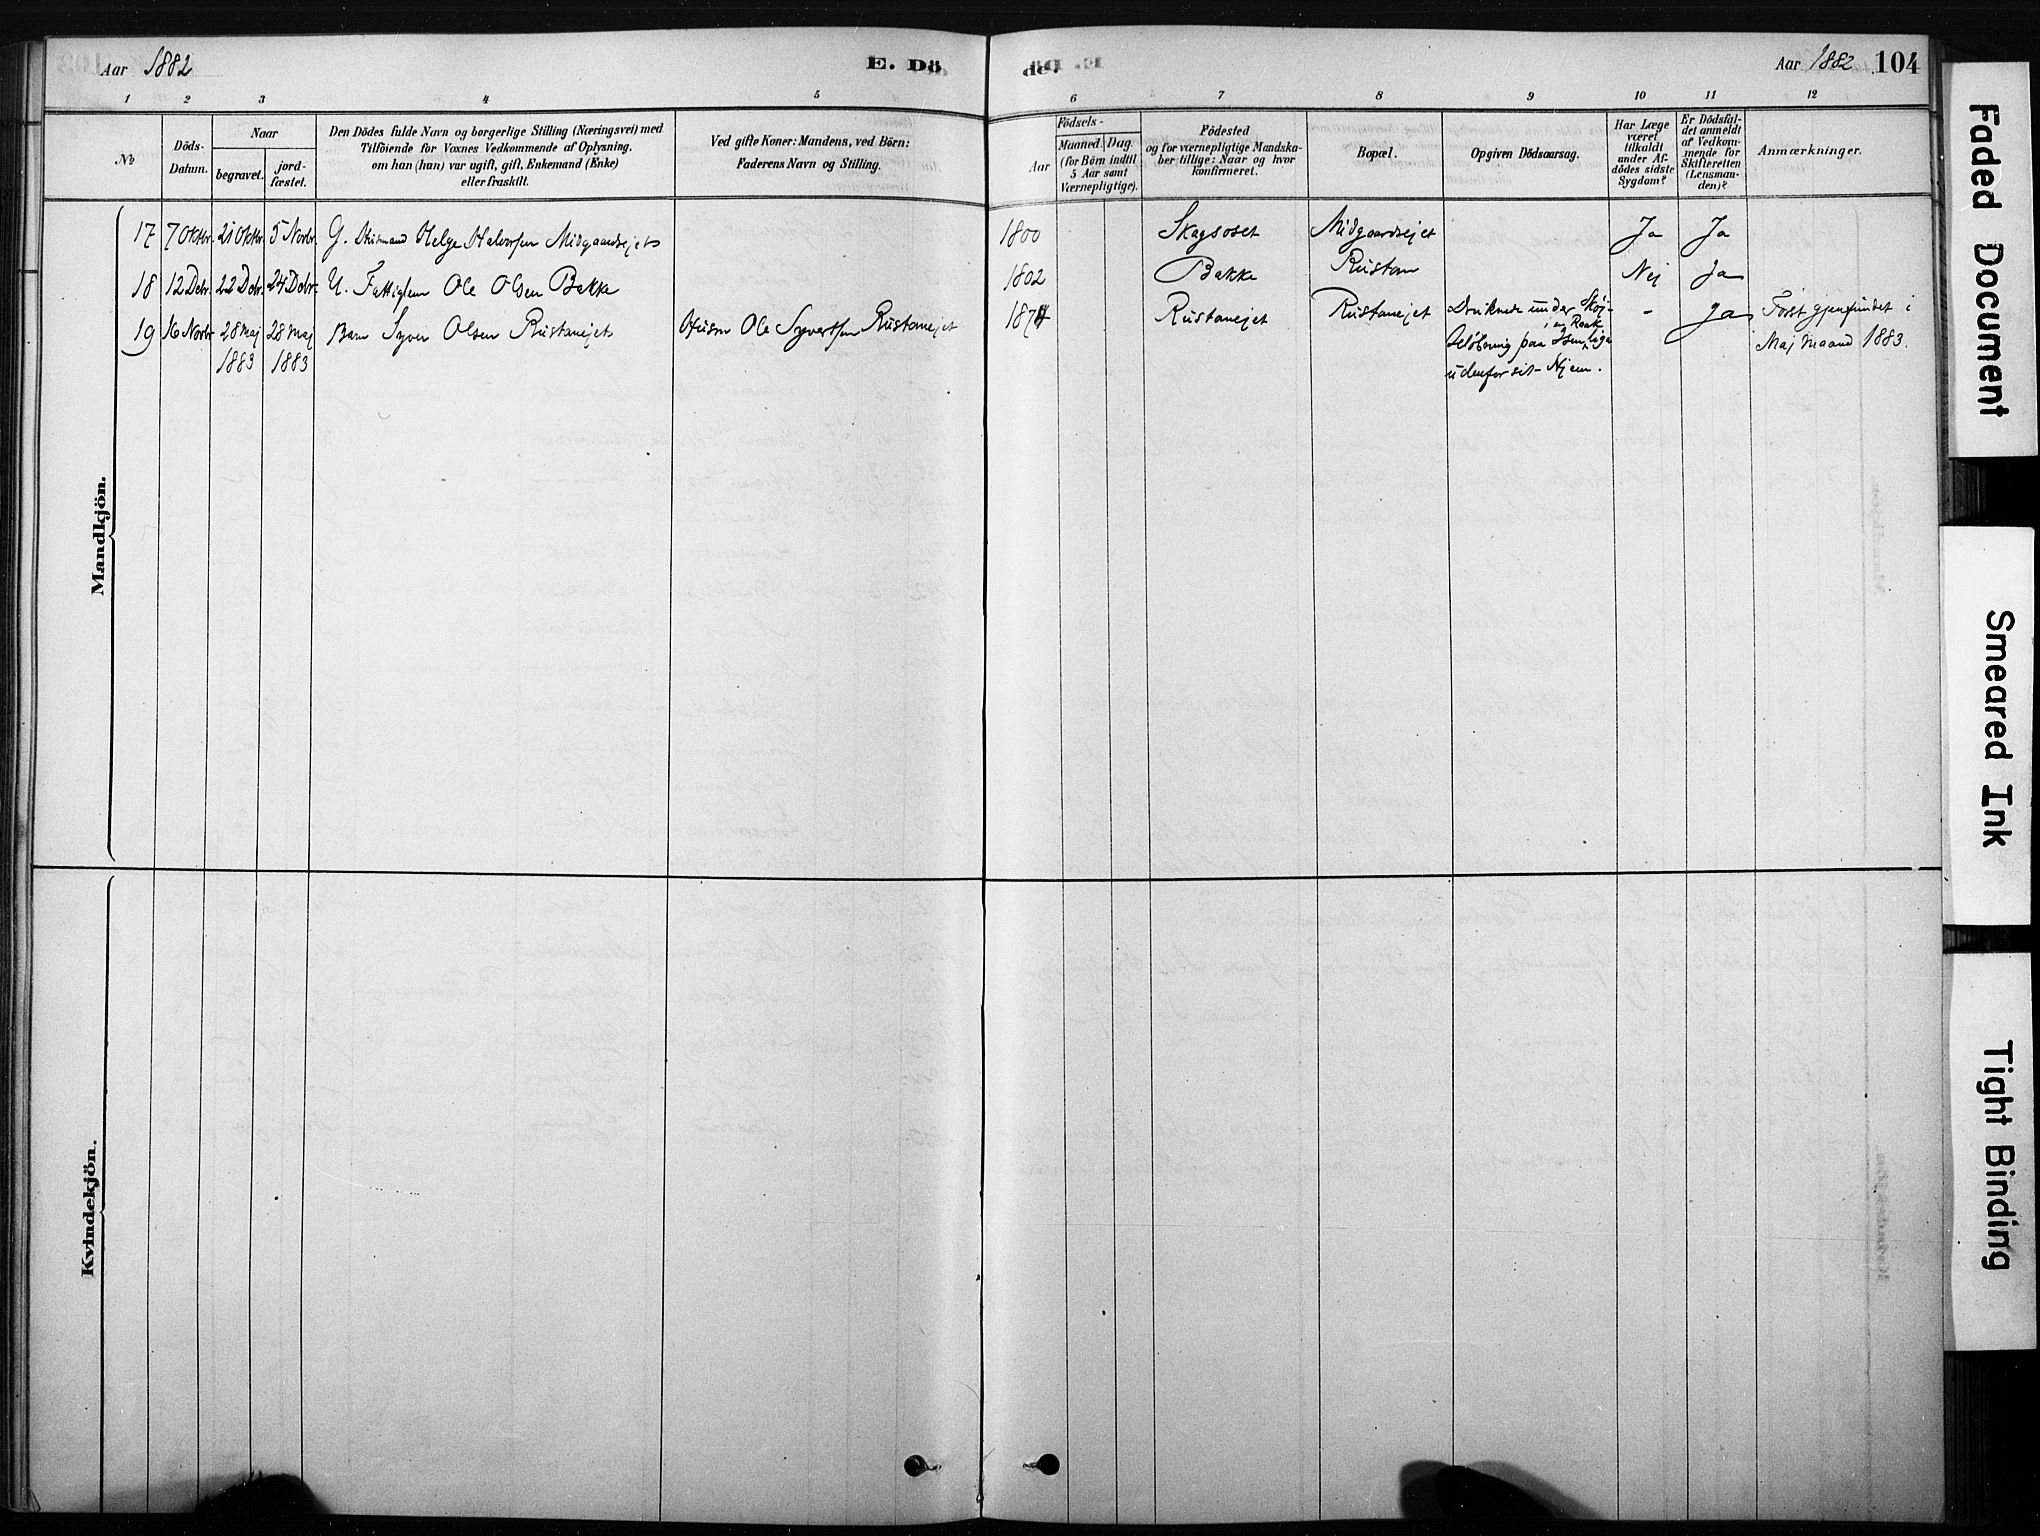 Aar 1882 E. Dö de. Aar 1882 104
1 2 3 4 5 6 7 8 9 10 11 12
No
Döds-Datum.
Naar
begravet.
jord-fæstet.
Den Dödes fulde Navn og borgerlige Stilling (Næringsvei) med
Tilföiende for Voxnes Vedkommende af Oplysning,
om han (hun) var ugift, gift, Enkemand (Enke)
eller fraskilt.
Ved gifte Koner: Mandens, ved Börn:
Faderens Navn og Stilling.
Födsels-
Aar
Maaned. Dag.
(for Börn indtil
5 Aar samt
Værnepligtige).
Födested
og for værnepligtige Mandska-
ber tillige: Naar og hvor
konfirmeret.
Bopæl.
Opgiven Dödsaarsag.
Har Læge
været
tilkaldt
under Af-
dödes sidste
Sygdom?
Er Dödsfal-
det anmeldt
af Vedkom-
mende for
Skifteretten
(Lensman-
den)?
Anmærkninger.
Mandkjön.
17 7 Oktbr. 21 Oktbr. 5 Novbr. G. Husmand Helge Halvorsen Midgaardsejet 1800 Skagsoset Midgaardsejet Ja Ja
18 12 Debr. 22 Debr. 24 Debr. U. Fattiglem Ole Olsen Bakke 1802 Bakke Rustan Nej Ja
19 16 Novbr 28 Maj 1883 28 Maj 1883 Barn Syver Olsen Rustanejet Husm Ole Syvertsen Rustanejet 1874 Rustanejet Rustanejet Druknede under Skøj-
teløbning paa Isen i en Raak lige
udenfor sit Hjem. - Ja Først gjenfundet i
Maj Maaned 1883.
Kvindekjön.
Faded Document
Smeared Ink
Tight Binding